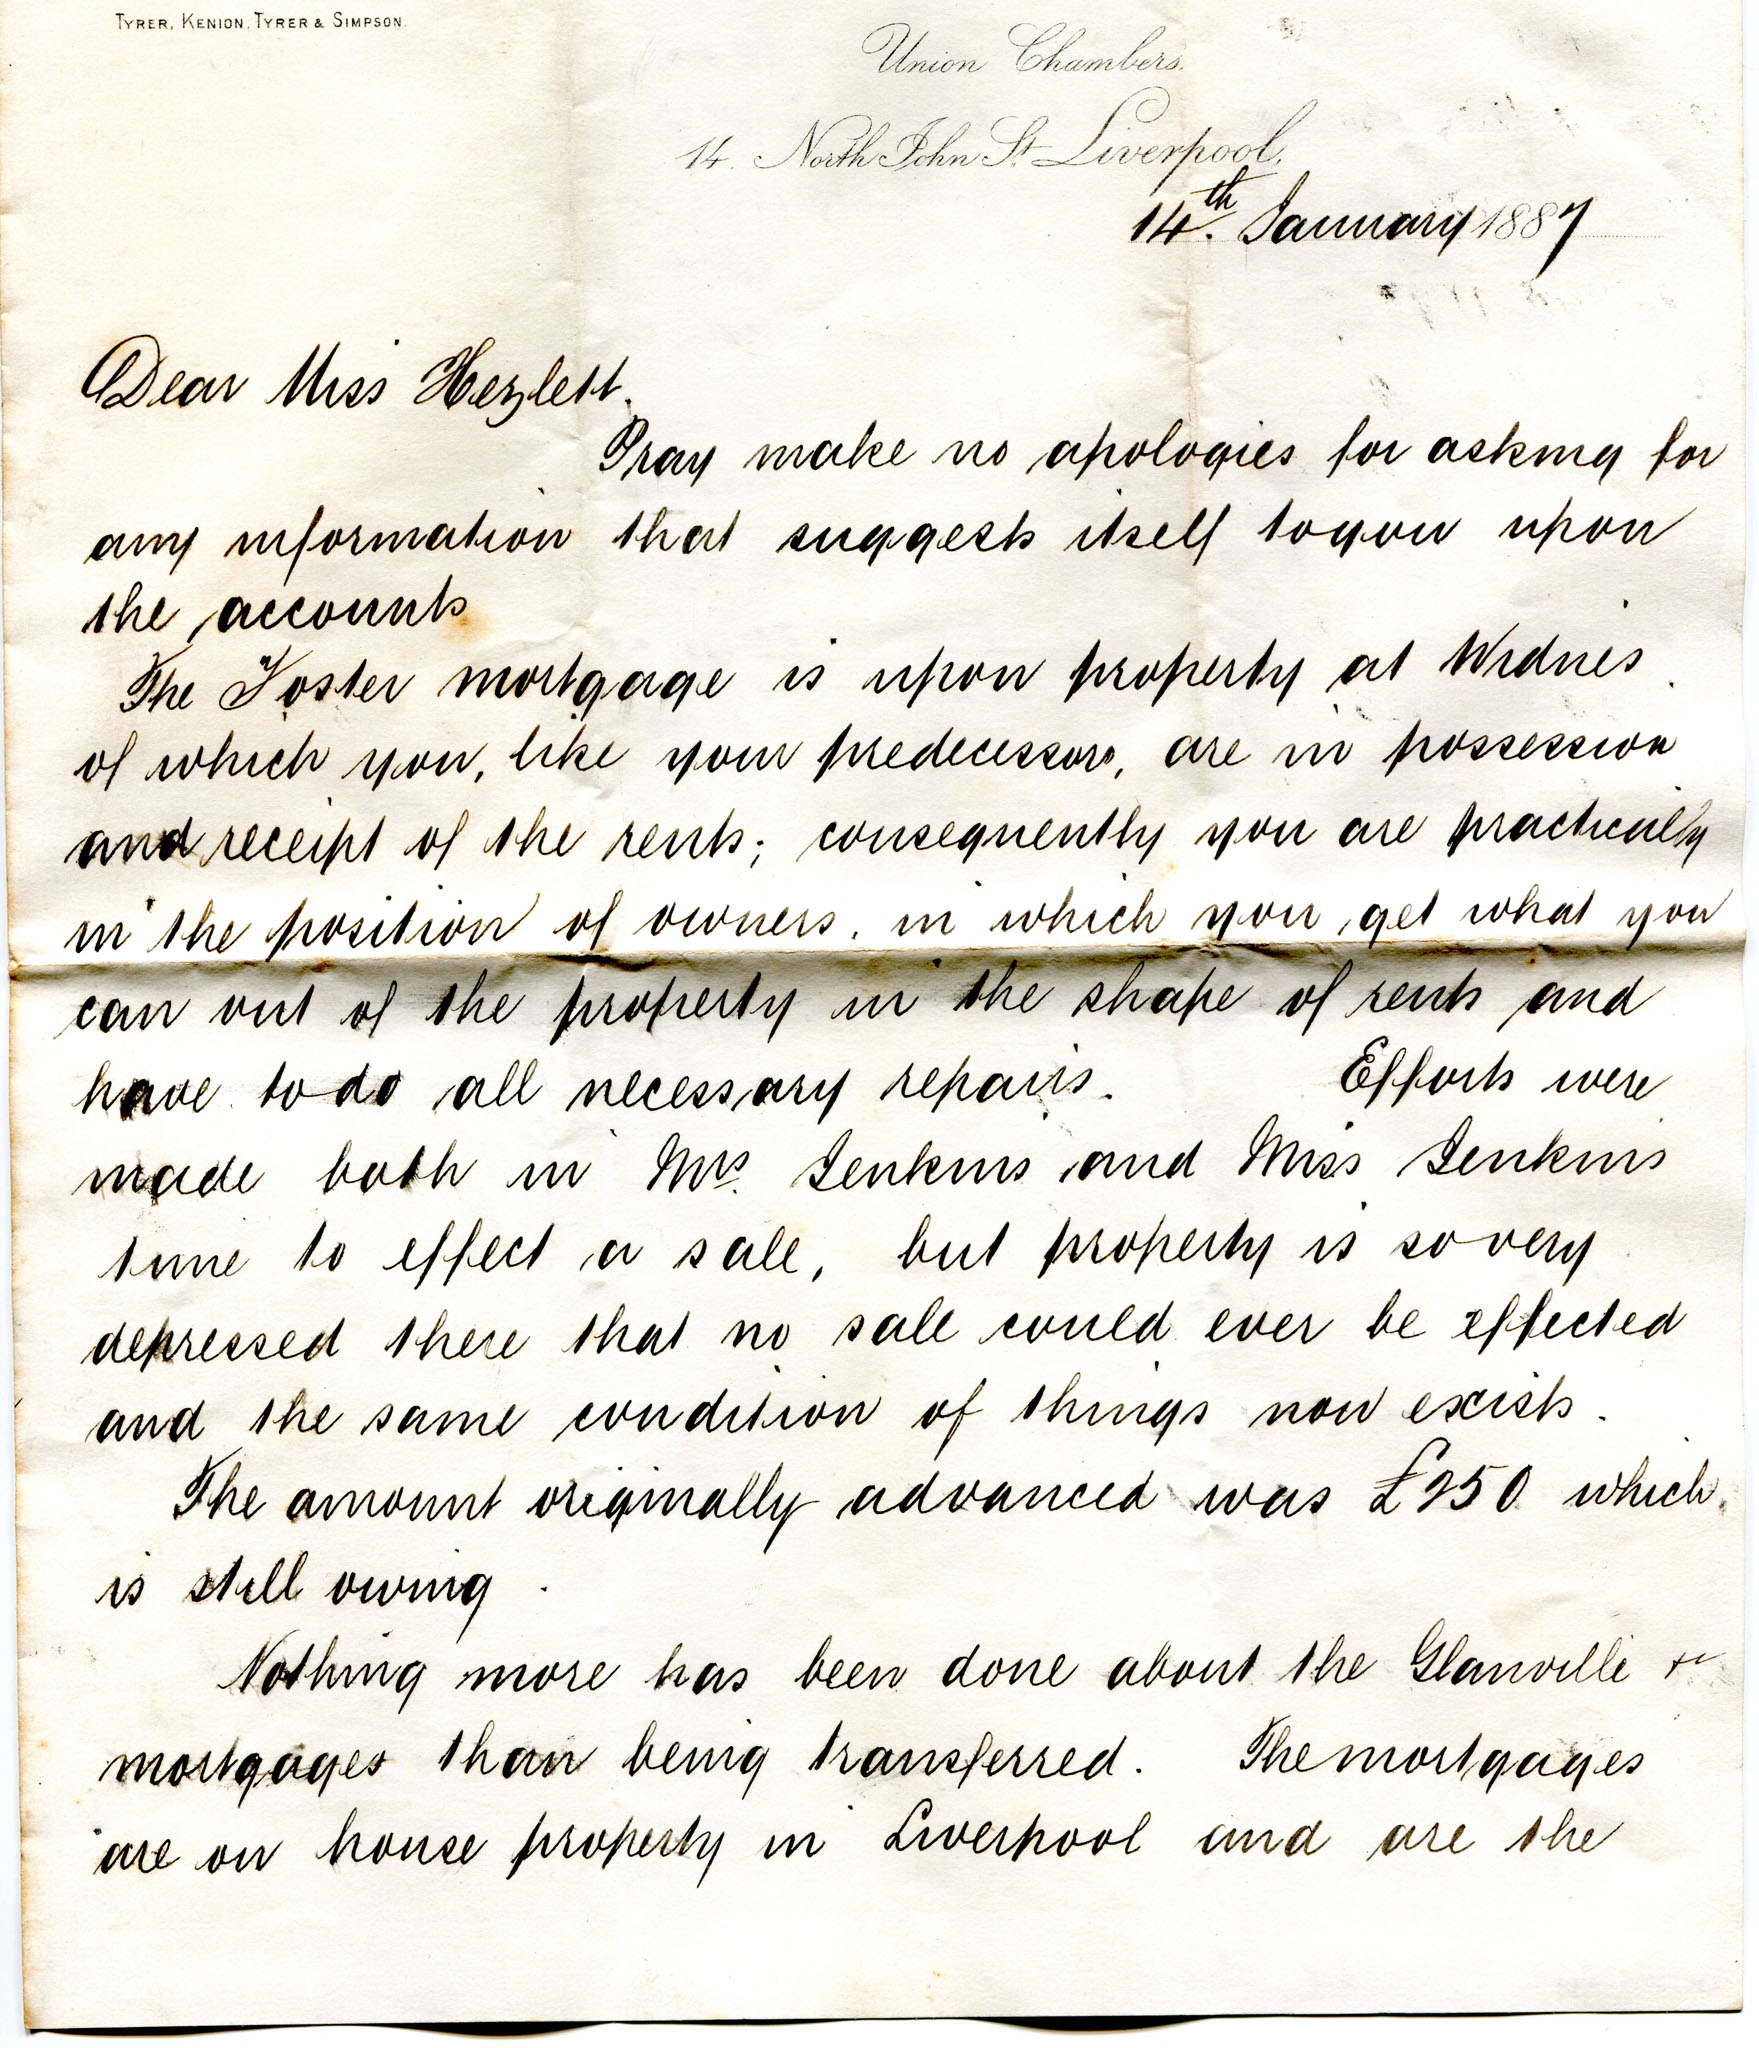 TYRER, KENION, TYRER & SIMPSON.
Union Chambers.
14. North John St. Liverpool,
14th. January 1887
Dear Miss Hezlett.
Pray make no apologies for asking for
any information that suggests itself to you upon
the accounts
The Foster mortgage is upon property at Widnes
of which you, like your predecessors, are in possession
and receipt of the rents; consequently you are practically
in the position of owners, in which you get what you
can out of the property in the shape of rents and
have to do all necessary repairs. Efforts were
made both in Mrs. Jenkins and Miss Jenkins
time to effect a sale, but property is so very
depressed there that no sale could ever be effected
and the same condition of things now exists.
The amount originally advanced was £250 which
is still owing.
Nothing more has been done about the Glanville &c
mortgages than being transferred. The mortgages
are on house property in Liverpool and are the